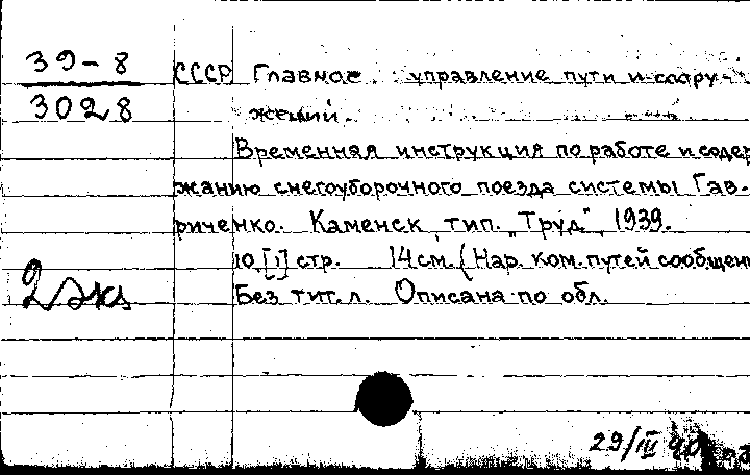 39-8
3028
СССР Главное управление пути и соору-
жений.
Временная инструкция по работе и содер
жанию снегоуборочного поезда системы Гав-
риченко. Каменск, тип. „Труд“, 1939.
10, [1] стр. 14 см. (Нар. ком. путей сообщен
Без тит. л. Описана по обл.
2 экз
29/III 40